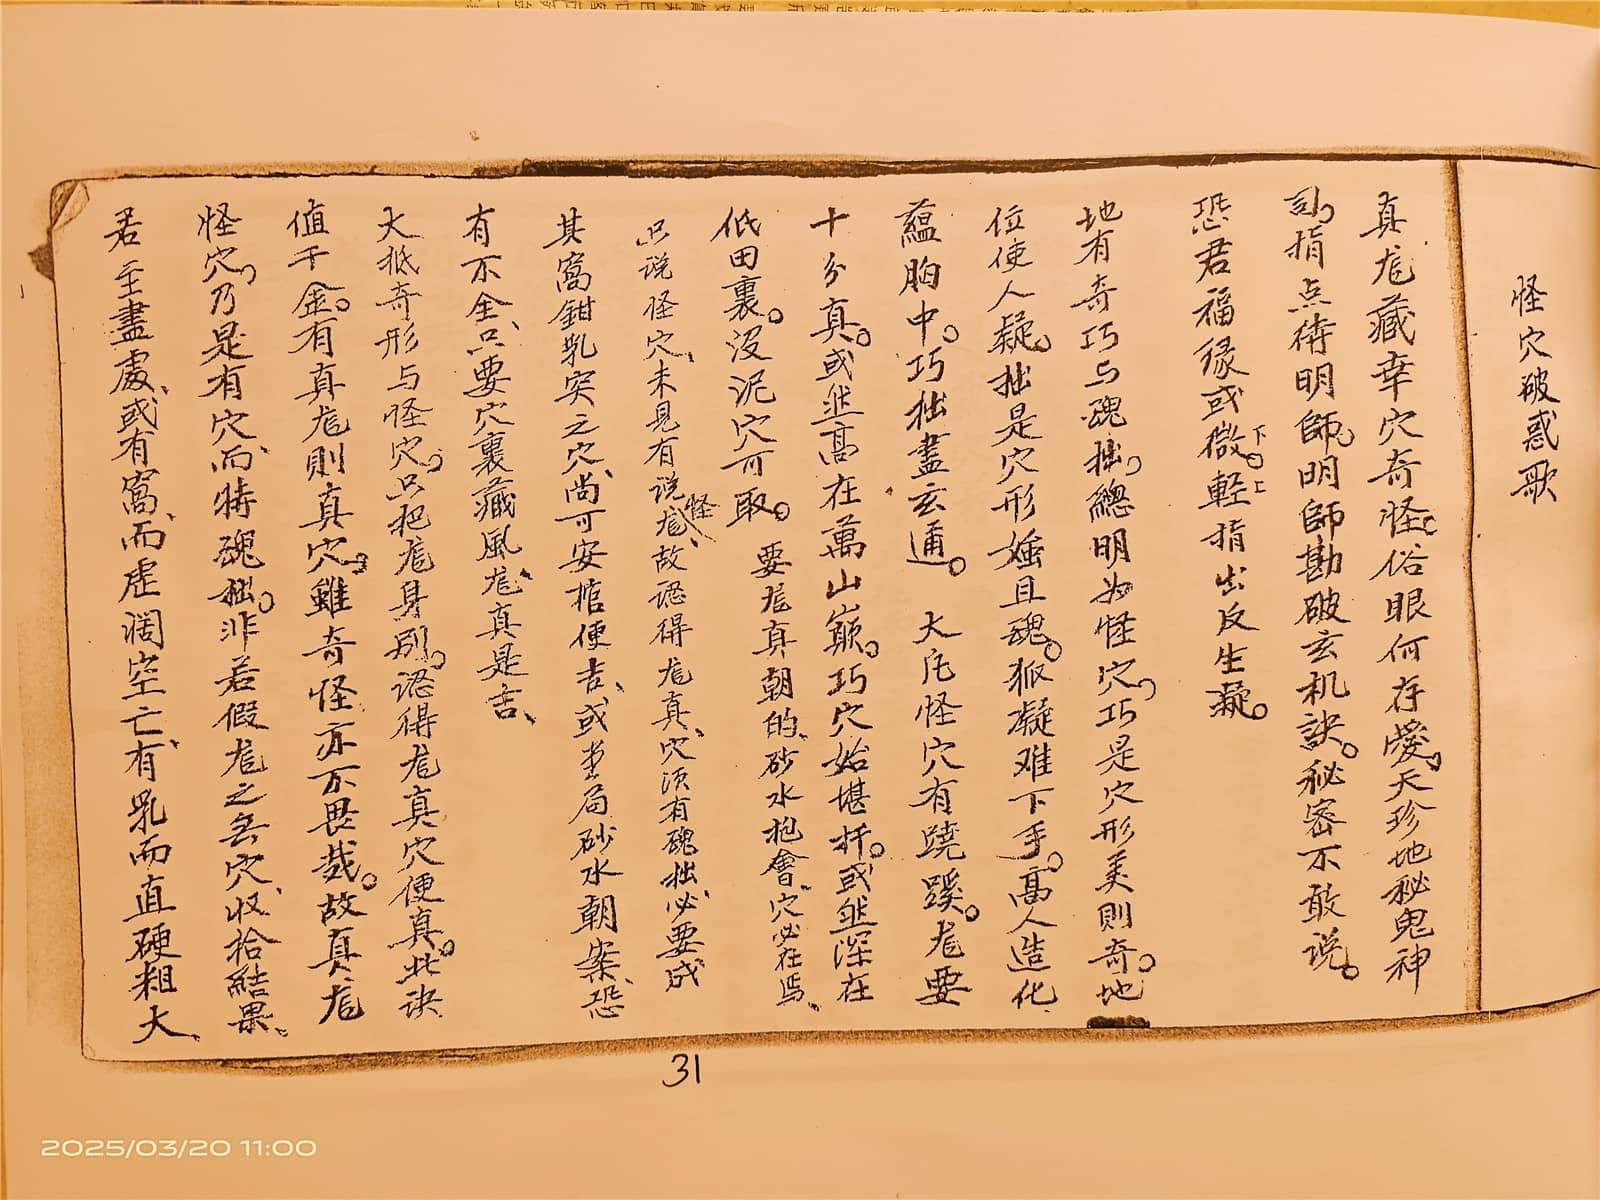 怪穴破惑歌
真龙藏幸穴奇怪。俗眼何存愛。天珍地秘鬼神
司。指点待明師。明師勘破玄机訣。秘密不敢说。
恐君福缘或微下。輕上指出反生凝。
地有奇巧与魂拙。總明为怪穴。巧是穴形美則奇。地
位使人凝。拙是穴形媸且魂。狐凝难下手。高人造化
蘊胸中。巧拙盡玄通。 大凡怪穴有蹺蹊。龙要
十分真。或然高在萬山巔。巧穴始堪扦。或然深在
低田裏。没泥穴可取。 要龙真朝的、砂水抱會、穴必在焉、
只说怪穴、未見有说怪龙、故認得龙真、穴须有魂拙、必要成
其窩鉗乳突之穴、尚可安棺便吉、或堂局砂水朝案、恐
有不全、只要穴裏藏風、龙真是吉、
大抵奇形与怪穴。只把龙身别。認得龙真穴便真。此诀
值千金。有真龙則真穴。雖奇怪亦不畏哉。故真龙
怪穴、乃是有穴、而特魂拙。非若假龙之無穴、收拾結果、
若至盡處、或有窩、而虚濶空亡、有乳而直硬粗大、
31
2025/03/20 11:00